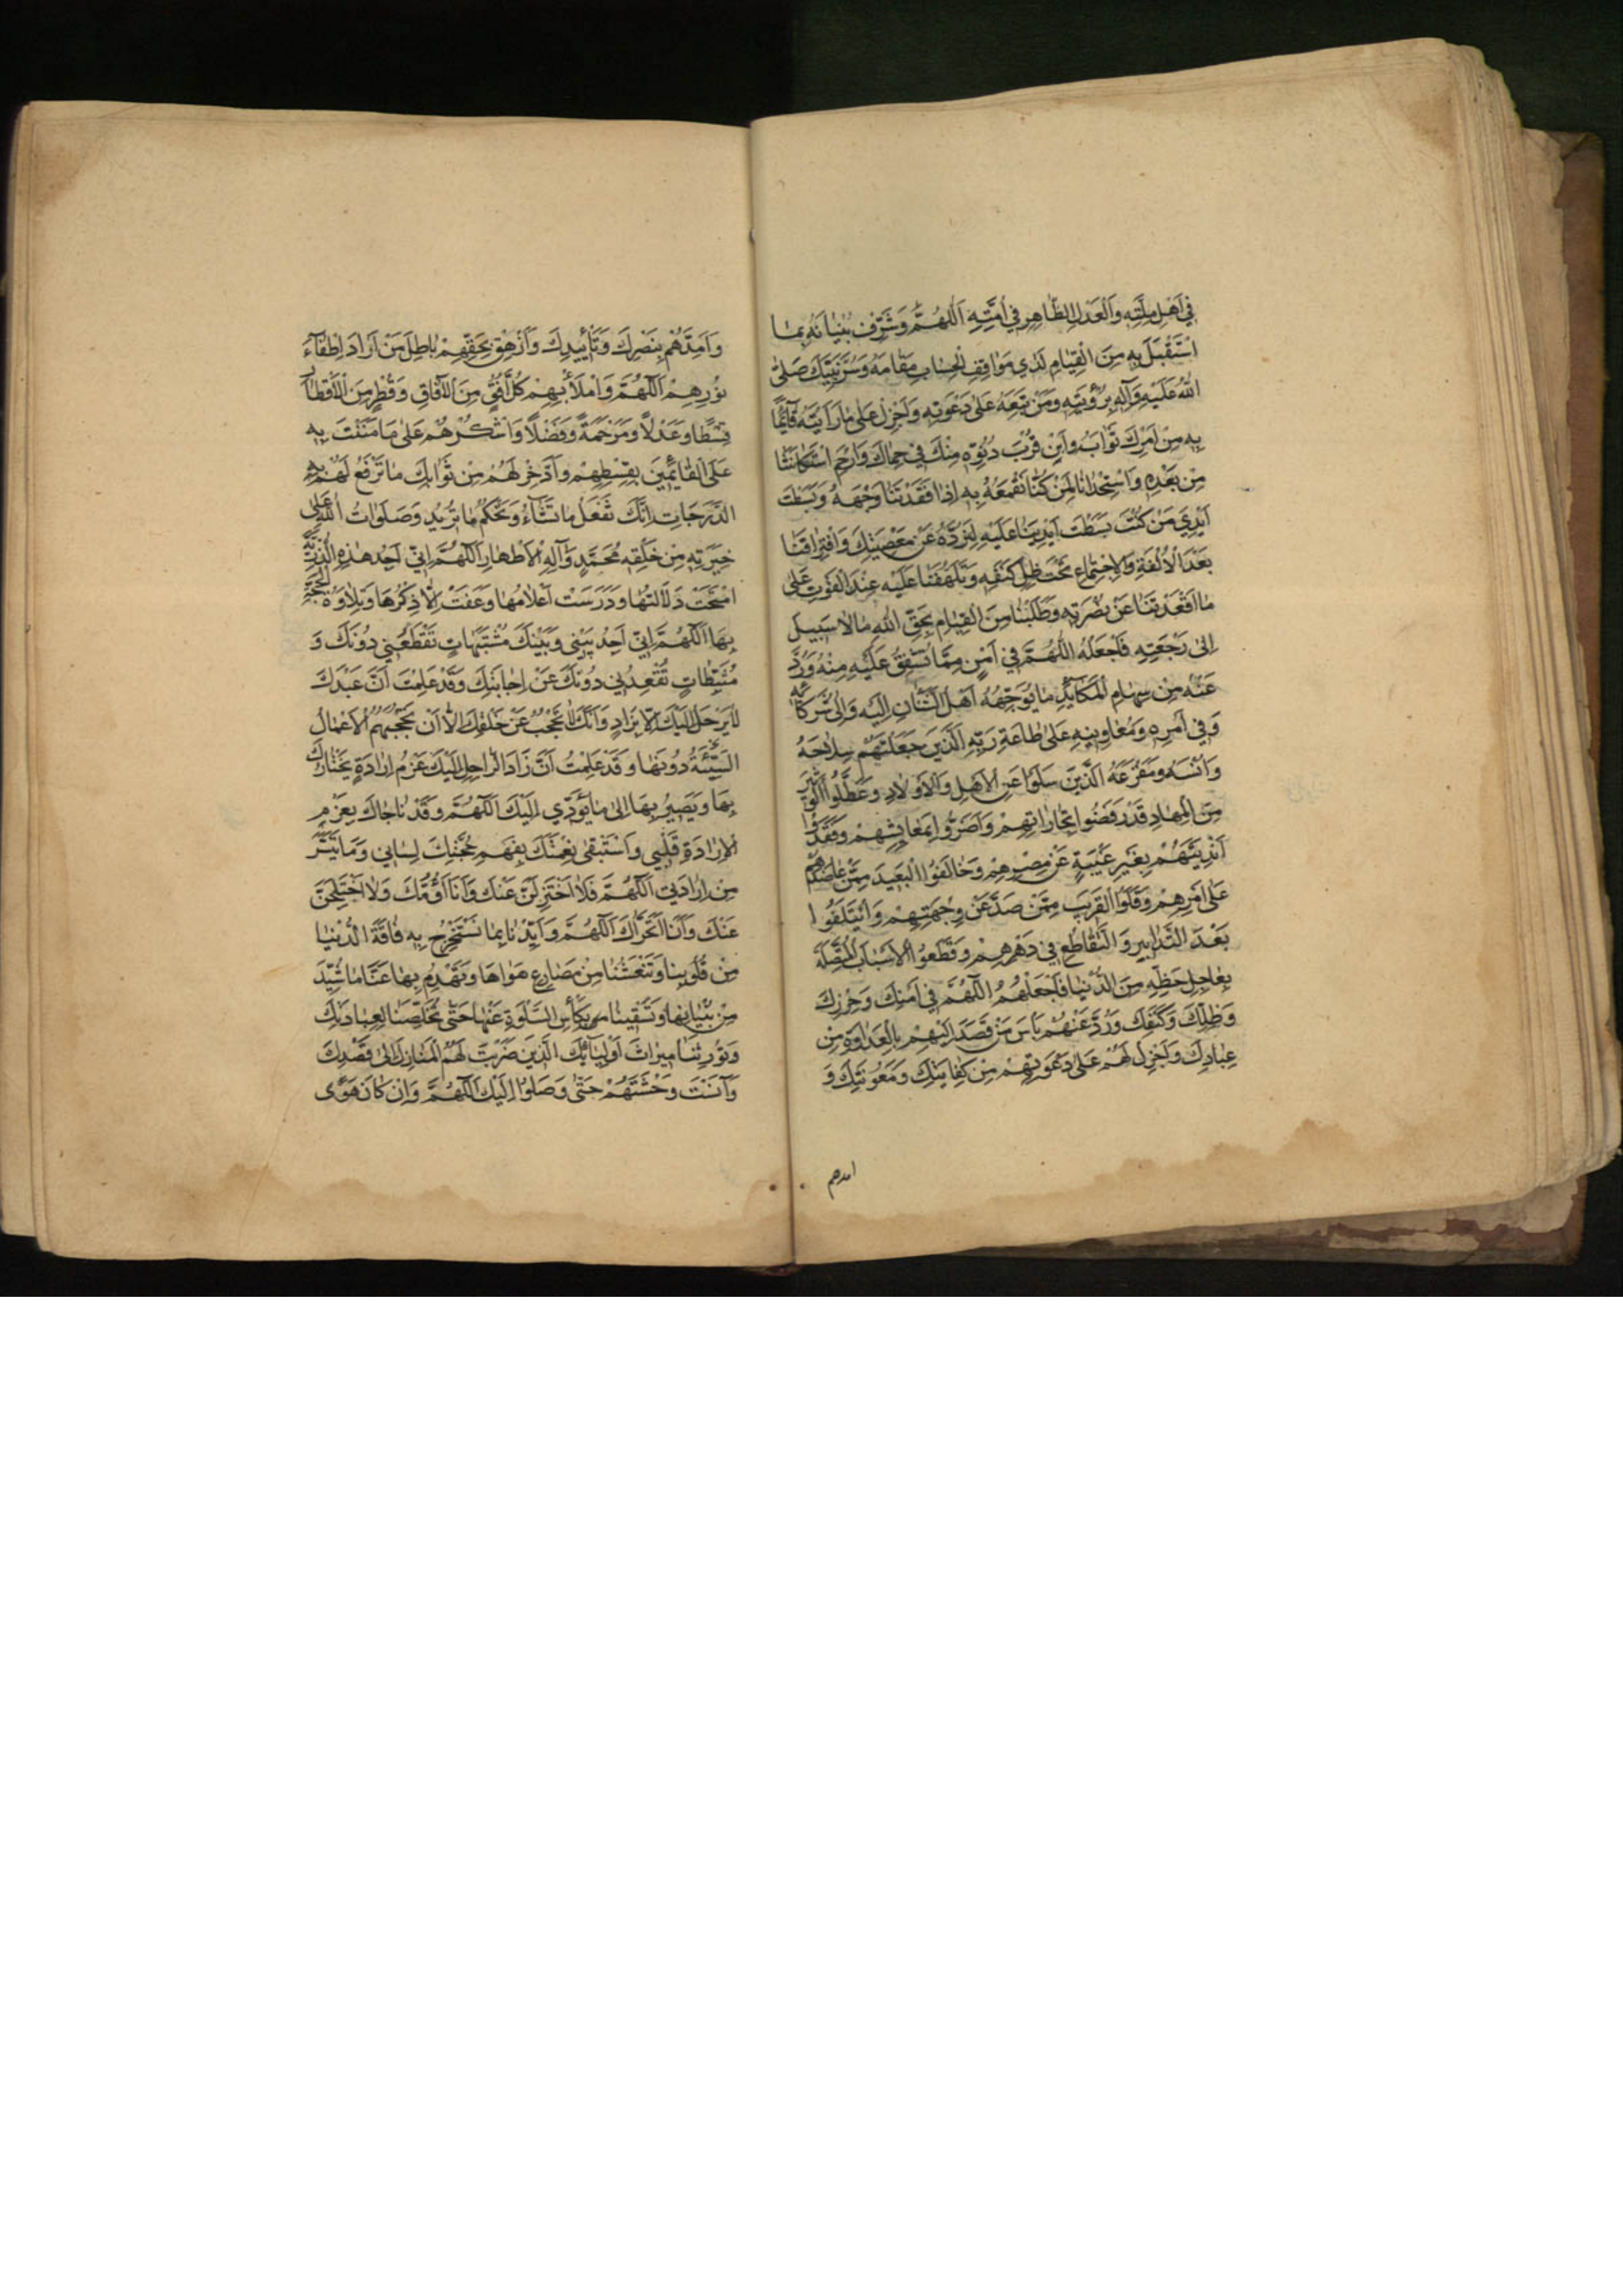 في اَهْلِ مِلَّتِهِ وَالْعَدْلِ الظّاهِرِ في اُمَّتِهِ اَللّهُمَّ وَشَرِّفْ بُنْيانَهُ بِمَا
اسْتَقْبَلَ بِهِ مِنَ الْقِيامِ لَدى مَواقِفِ الْحِسابِ مَقامَهُ وَسُرَّ نَبِيَّكَ صَلَّى
اللهُ عَلَيْهِ وَآلِهِ بِرُؤْيَتِهِ وَمَنْ تَبِعَهُ عَلى دَعْوَتِهِ وَاَجْزِلْ عَلى ما رَاَيْتَهُ قآئِمًا
بِهِ مِنْ اَمْرِكَ ثَوابَهُ وابِنْ قُرْبَ دُنُوِّهِ مِنْكَ في حِماكَ وَارْحَمِ اسْتِكانَتَنا
مِنْ بَعْدِهِ وَاسْتِخْذائَنا لِمَنْ كُنّا نَقْمَعُهُ بِهِ اِذا فَقَدْتَنا وَجْهَهُ وَبَسَطْتَ
اَيْدِيَ مَنْ كُنْتَ بَسَطْتَ اَيْدِيَنا عَلَيْهِ لِنَرُدَّهُ عَنْ مَعْصِيَتِكَ وَافْتِراقَنا
بَعْدَ الْاُلْفَةِ وَالْاِجْتِماعِ تَحْتَ ظِلِّ كَنَفِهِ وَتَلَهُّفَنا عَلَيْهِ عِنْدَ الْفَوْتِ عَلى
ما اَقْعَدْتَنا عَنْ نُصْرَتِهِ وَطَلَبْنا مِنَ الْقِيامِ بِحَقِّ اللهِ مالا سَبيلَ
اِلى رَجْعَتِهِ فَاجْعَلْهُ اللّهُمَّ في اَمْنٍ مِمّا تُشْفِقُ عَلَيْهِ مِنْهُ وَرُدَّ
عَنْهُ مِنْ سِهامِ الْمَكآئِدِ ما يُوَجِّهُهُ اَهْلُ الشَّنَآنِ اِلَيْهِ وَاِلى شُرَكائِهِ
وَفي اَمْرِهِ وَمُعاوِنيهِ عَلى طاعَةِ رَبِّهِ الَّذينَ جَعَلْتَهُمْ سِلاحَهُ
وَاُنْسَهُ وَمَفْزَعَهُ الَّذينَ سَلَوْا عَنِ الْاَهْلِ وَالْاَوْلادِ وَعَطَّلُوا الْوَثيرَ
مِنَ الْمِهادِ قَدْ رَفَضُوا تِجاراتِهِمْ وَاَضَرُّوا بِمَعايِشِهِمْ وَفُقِدُوا
اَنْدِيَتَهُمْ بِغَيْرِ غَيْبَةٍ عَنْ مِصْرِهِمْ وَحالَفُوا الْبَعيدَ مِمَّنْ عاضَدَهُمْ
عَلى اَمْرِهِمْ وَقَلَوُا الْقَريبَ مِمَّنْ صَدَّ عَنْ وِجْهَتِهِمْ وَائْتَلَفُوا
بَعْدَ التَّدابُرِ وَالتَّقاطُعِ في دَهْرِهِمْ وَقَطَعُوا الْاَسْبابَ الْمُتَّصِلَةَ
بِعاجِلِ حَظِّهِ مِنَ الدُّنْيا فَاجْعَلْهُمُ اللّهُمَّ في اَمْنِكَ وَحِرْزِكَ
وَظِلِّكَ وَكَنَفِكَ وَرُدَّ عَنْهُمْ بَاْسَ مَنْ قَصَدَ اِلَيْهِمْ بِالْعَداوَةِ مِنْ
عِبادِكَ وَاَجْزِلْ لَهُمْ عَلى دَعْوَتِهِمْ مِنْ كِفايَتِكَ وَمَعُونَتِكَ وَ
امدهم
وَاَمِدَّهُمْ بِنَصْرِكَ وَتَأْييدِكَ وَاَزْهِقْ بِحَقِّهِمْ باطِلَ مَنْ اَرادَ اِطْفآءَ
نُورِهِمْ اَللّهُمَّ وَامْلَأْ بِهِمْ كُلَّ اُفُقٍ مِنَ الْآفاقِ وَقُطْرٍ مِنَ الْاَقْطارِ
قِسْطًا وَعَدْلاً وَمَرْحَمَةً وَفَضْلاً وَاشْكُرْهُمْ عَلى ما مَنَنْتَ بِهِ
عَلَى الْقائِمينَ بِقِسْطِهِمْ وَادَّخِرْ لَهُمْ مِنْ ثَوابِكَ ما تَرْفَعُ لَهُمْ بِهِ
الدَّرَجاتِ اِنَّكَ تَفْعَلُ ما تَشآءُ وَتَحْكُمُ ما تُريدُ وَصَلَواتُ اللهِ عَلى
خِيَرَتِهِ مِنْ خَلْقِهِ مُحَمَّدٍ وَآلِهِ الْاَطْهارِ اَللّهُمَّ اِنّي اَجِدُ هذِهِ النُّدْبَةَ
امْتَحَتْ دَلالَتُها وَدَرَسَتْ اَعْلامُها وَعَفَتْ اِلاّ ذِكْرُها وَتِلاوَةُ الْحُجَّةِ
بِها اَللّهُمَّ اِنّي اَجِدُ بَيْني وَبَيْنَكَ مُشْتَبِهاتٍ تَقْطَعُني دُونَكَ وَ
مُثَبِّطاتٍ تُقْعِدُني دُونَكَ عَنْ اِجابَتِكَ وَقَدْ عَلِمْتُ اَنَّ عَبْدَكَ
لا يَرْحَلُ اِلَيْكَ اِلاّ بِزادٍ وَاَنَّكَ لا تُحْجَبُ عَنْ خَلْقِكَ اِلاّ اَنْ تَحْجُبَهُمُ الْاَعْمالُ
السَّيِّئَةُ دُونَها وَقَدْ عَلِمْتُ اَنَّ زادَ الرّاحِلِ اِلَيْكَ عَزْمُ اِرادَةٍ يَخْتارُكَ
بِها وَيَصيرُ بِها اِلى ما يُؤَدّي اِلَيْكَ اَللّهُمَّ وَقَدْ ناجاكَ بِعَزْمِ
الْاِرادَةِ قَلْبي وَاسْتَبْقى نِعْمَتَكَ بِفَهْمِ حُجَّتِكَ لِساني وَما تَيَسَّرَ
مِنْ اِرادَتي اَللّهُمَّ فَلا اُخْتَزَلَنَّ عَنْكَ وَاَنَا اَؤُمُّكَ وَلا اُخْتَلَجَنَّ
عَنْكَ وَاَنَا اَتَحَرّاكَ اَللّهُمَّ وَاَيِّدْنا بِما نَسْتَخْرِجُ بِهِ فاقَةَ الدُّنْيا
مِنْ قُلُوبِنا وَتَنْعَشُنا مِنْ مَصارِعِ هَواها وَتَهْدِمُ بِها عَنّا ما شُيِّدَ
مِنْ بُنْيانِها وَتَسْقينا بِكَأْسِ السَّلْوَةِ عَنْها حَتّى تُخَلِّصَنا لِعِبادَتِكَ
وَتُورِثَنا ميراثَ اَوْلِيآئِكَ الَّذينَ ضَرَبْتَ لَهُمُ الْمَنازِلَ اِلى قَصْدِكَ
وَآنَسْتَ وَحْشَتَهُمْ حَتّى وَصَلُوا اِلَيْكَ اَللّهُمَّ وَاِنْ كانَ هَوًى